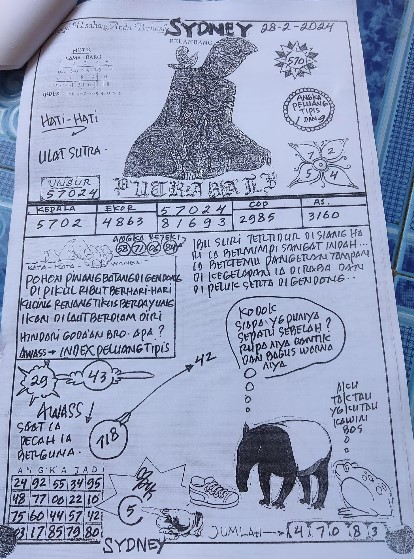 SYDNEY 28-2-2024
HATI-HATI
ULAT SUTRA.
570
ANGKA
PELUANG
TIPIS
DAN
2
5
4
UNSUR
57024
PUTRA BALI
KEPALA EKOR 57024 COP AS.
5702 4863 81693 2985 3160
POHON PINANG BATANG DI GENDONG
DI PIKUL RIBUT BERHARI-HARI
KUCING RENANG TIKUS BERDAYUNG
IKAN DI LAUT BERDIAM DIRI
HINDARI GODAAN BRO. APA?
AWASS → INDEX PELUANG TIPIS
IBU SURI TERTIDUR DI SIANG HA
RI IA BERMIMPI SANGAT INDAH...
IA BERTEMU PANGERAN TAMPAN
DI KEGELAPAN IA DIRABA DAN
DI PELUK SERTA DI GENDONG..
29 43
42
AWASS
SAAT IA
PECAH IA
BERGUNA.
718
KODOK
SIAPA YG PUNYA
SEPATU SEBELAH?
RUPANYA CANTIK
DAN BAGUS WARNA
NYA
AKU
TAK TAU
YG KU TAU
KAWIN
BOS
ANGKA JADI
24 92 55 34 95
48 77 00 22 10
75 60 44 57 42
03 17 85 79 80
5
JUMLAH → 4 7 0 8 3
SYDNEY